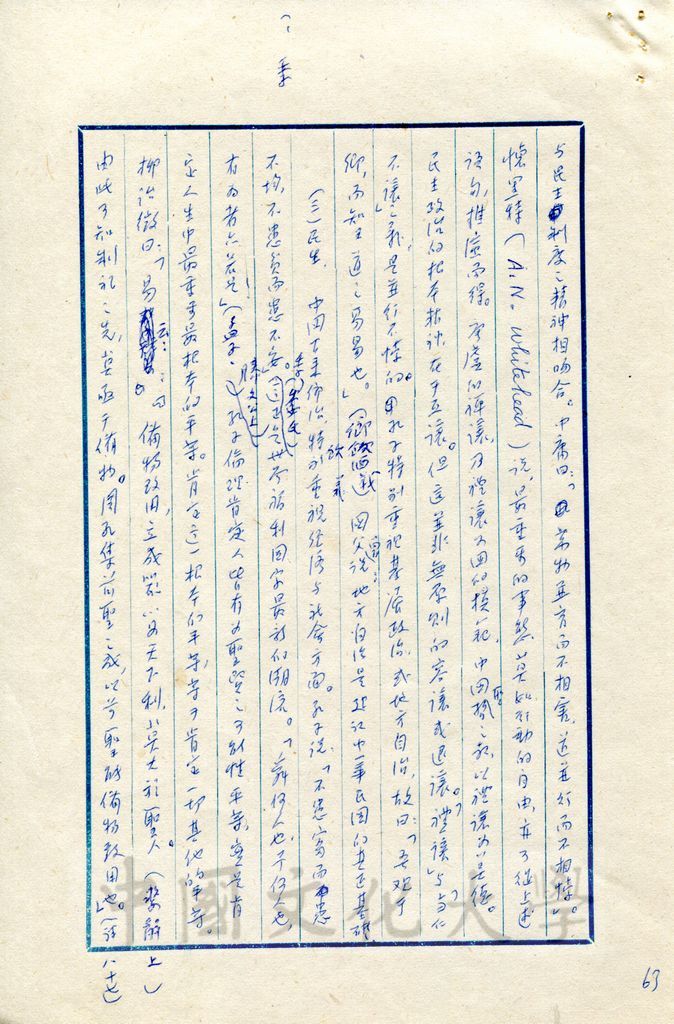 與民主制度之精神相吻合。中庸曰:「萬物並育而不相害,道並行而不相悖。」
懷黑特(A.N. Whitehead)說,最重要的事態,莫如行動的自由,亦可從上述
語句,推演而得。唐虞的禪讓,乃禮讓為國的模範,中國之政,以禮讓為美德。
民主政治的根本精神,在乎互讓。但這並非無原則的容讓或退讓。「禮讓」與「當仁
不讓」之說,是並行不悖的。孔子特別重視基層政治,或地方自治,故曰:「吾觀于
鄉,而知王道之易易也。」(鄉飲酒義)國父說:地方自治是建設中華民國的真正基礎
(三)民生 中國古來儒治,特別重視經濟與社會方面。孔子說,「不患寡而患
不均,不患貧而患不安。」(季氏)這正是世界福利國家最新的潮流。「舜何人也,予何人也,
有為者亦若是」(孟子、滕文公上)孔子倫理,肯定人皆有為聖賢之可能性平等,實是肯
定人生中最重要最根本的平等。肯定這一根本的平等,等于肯定一切其他的平等。
柳詒徵曰:「易云:備物致用,立成器以為天下利,莫大於聖人。(繫辭上)
由此可知制禮之先,莫亟于備物。周孔集前聖之成,以前聖能備物致用也。」(註八十七)
63
中國文化大學